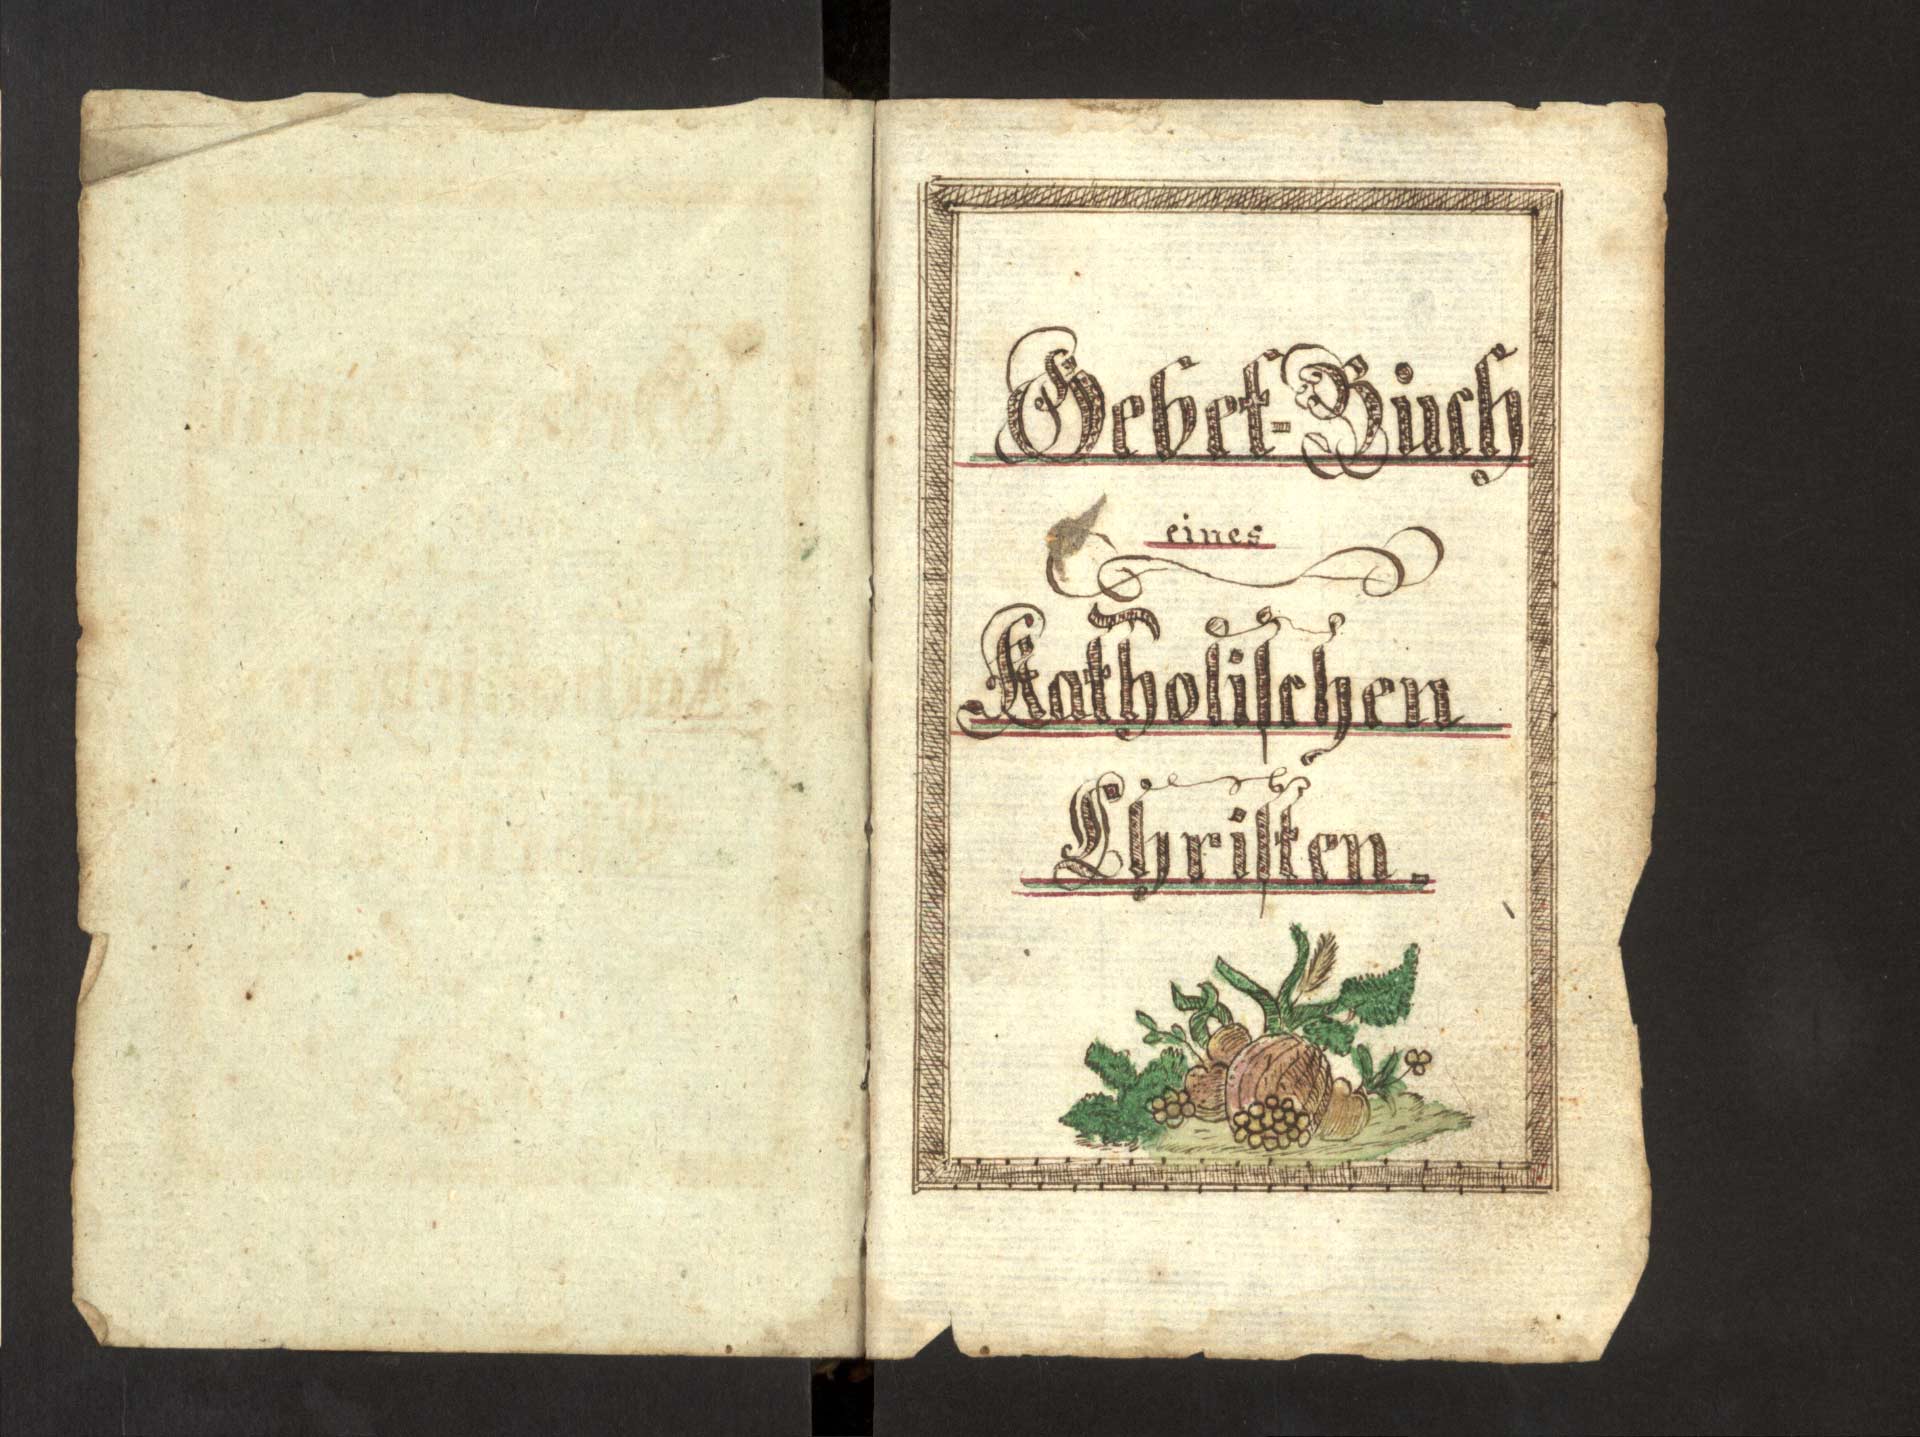 Gebet-Buch
eines
Katholischen
Christen.